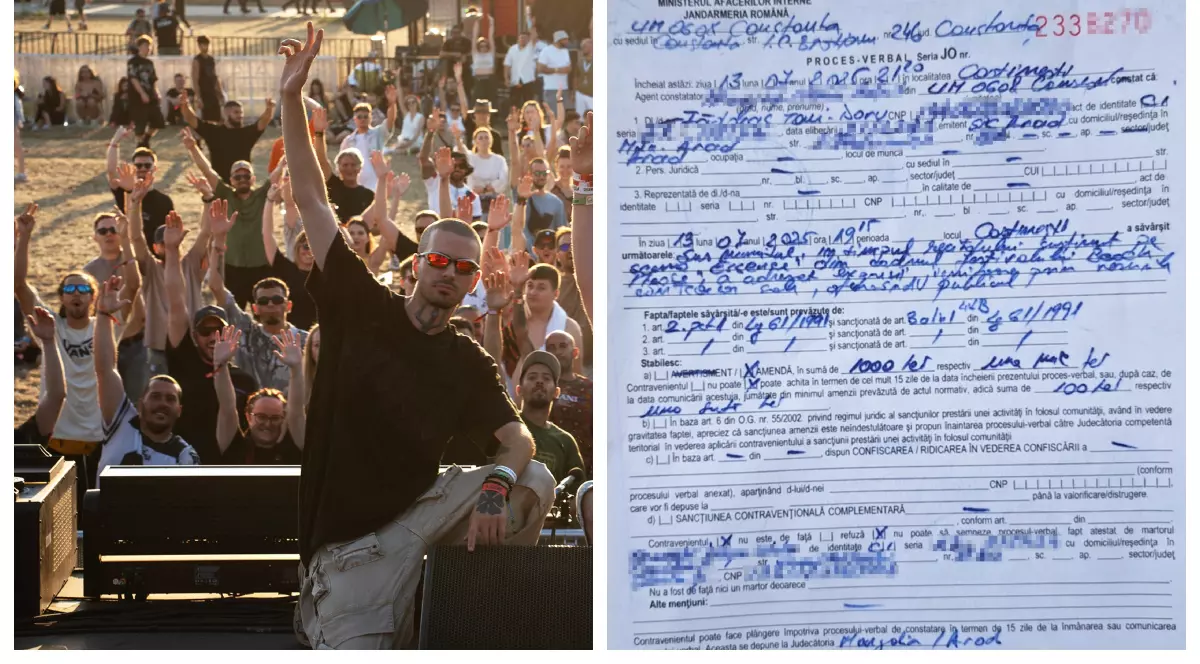 VANS
MINISTERUL AFACERILOR INTERNE
JANDARMERIA ROMÂNĂ
UM 0608 Constanța
cu sediul în Constanța, str. nr. 246 jud. Constanța
233
PROCES-VERBAL Seria JO nr.
Încheiat astăzi, ziua 13 luna 07 2025 ora 21 în localitatea Costinești
Agent constatator din UM 0608 Constanța constat că:
(grad, nume, prenume)
1. Dl./d-na Doru CNP act de identitate CI
seria , data eliberării , emitent SPC Arad, cu domiciliul/reședința în
Mun. Arad str. nr. sc. ap. sector/județ
Arad, ocupația - locul de muncă -
2. Pers. Juridică cu sediul în - str.
nr. bl. sc. ap. , sector/județ CUI
3. Reprezentată de dl./d-na - în calitate de - , act de
identitate seria nr. CNP cu domiciliul/reședința în
, str. nr. bl sc. ap. , sector/județ
În ziua 13 luna 07 2025 ora 19 15 perioada locul Costinești a săvârșit
următoarele: Sus numitul, în timpul recitalului susținut pe
scena din cadrul festivalului Beach
Please a adresat expresii
, ofensând publicul
Fapta/faptele săvârșită/-e este/sunt prevăzute de:
1. art. 2 pct 1 din Lg 61/1991 și sancționată de art. 3 al 1 lit B din Lg 61/1991
2. art. / din / și sancționată de art. / din /
3. art. / din / și sancționată de art. / din /
Stabilesc:
a) AVERTISMENT / X AMENDĂ, în sumă de 1000 lei respectiv una mie lei
Contravenientul nu poate X poate achita în termen de cel mult 15 zile de la data încheierii prezentului proces-verbal, sau, după caz, de
la data comunicării acestuia, jumătate din minimul amenzii prevăzută de actul normativ, adică suma de 100 lei respectiv
una sută lei
b) În baza art. 6 din O.G. nr. 55/2002 privind regimul juridic al sancțiunilor prestării unei activități în folosul comunității, având în vedere
gravitatea faptei, apreciez că sancțiunea amenzii este neîndestulătoare și propun înaintarea procesului-verbal către Judecătoria competentă
teritorial în vederea aplicării contravenientului a sancțiunii prestării unei activități în folosul comunității
c) În baza art. - din - , dispun CONFISCAREA / RIDICAREA ÎN VEDEREA CONFISCĂRII a -
(conform
procesului verbal anexat), aparținând d-lui/d-nei CNP
care vor fi depuse la până la valorificare/distrugere.
d) SANCȚIUNEA CONTRAVENȚIONALĂ COMPLEMENTARĂ -
, conform art. din
Contravenientul X nu este de față refuză X nu poate să semneze procesul-verbal, fapt atestat de martorul
de identitate CI seria nr. cu domiciliul/reședința în
str. nr. , sc. , ap. , sector/județ
, CNP
Nu a fost de față nici un martor deoarece
Alte mențiuni: -
Contravenientul poate face plângere împotriva procesului-verbal de constatare în termen de 15 zile de la înmânarea sau comunicarea
Aceasta se depune la Judecătoria Mangalia / Arad